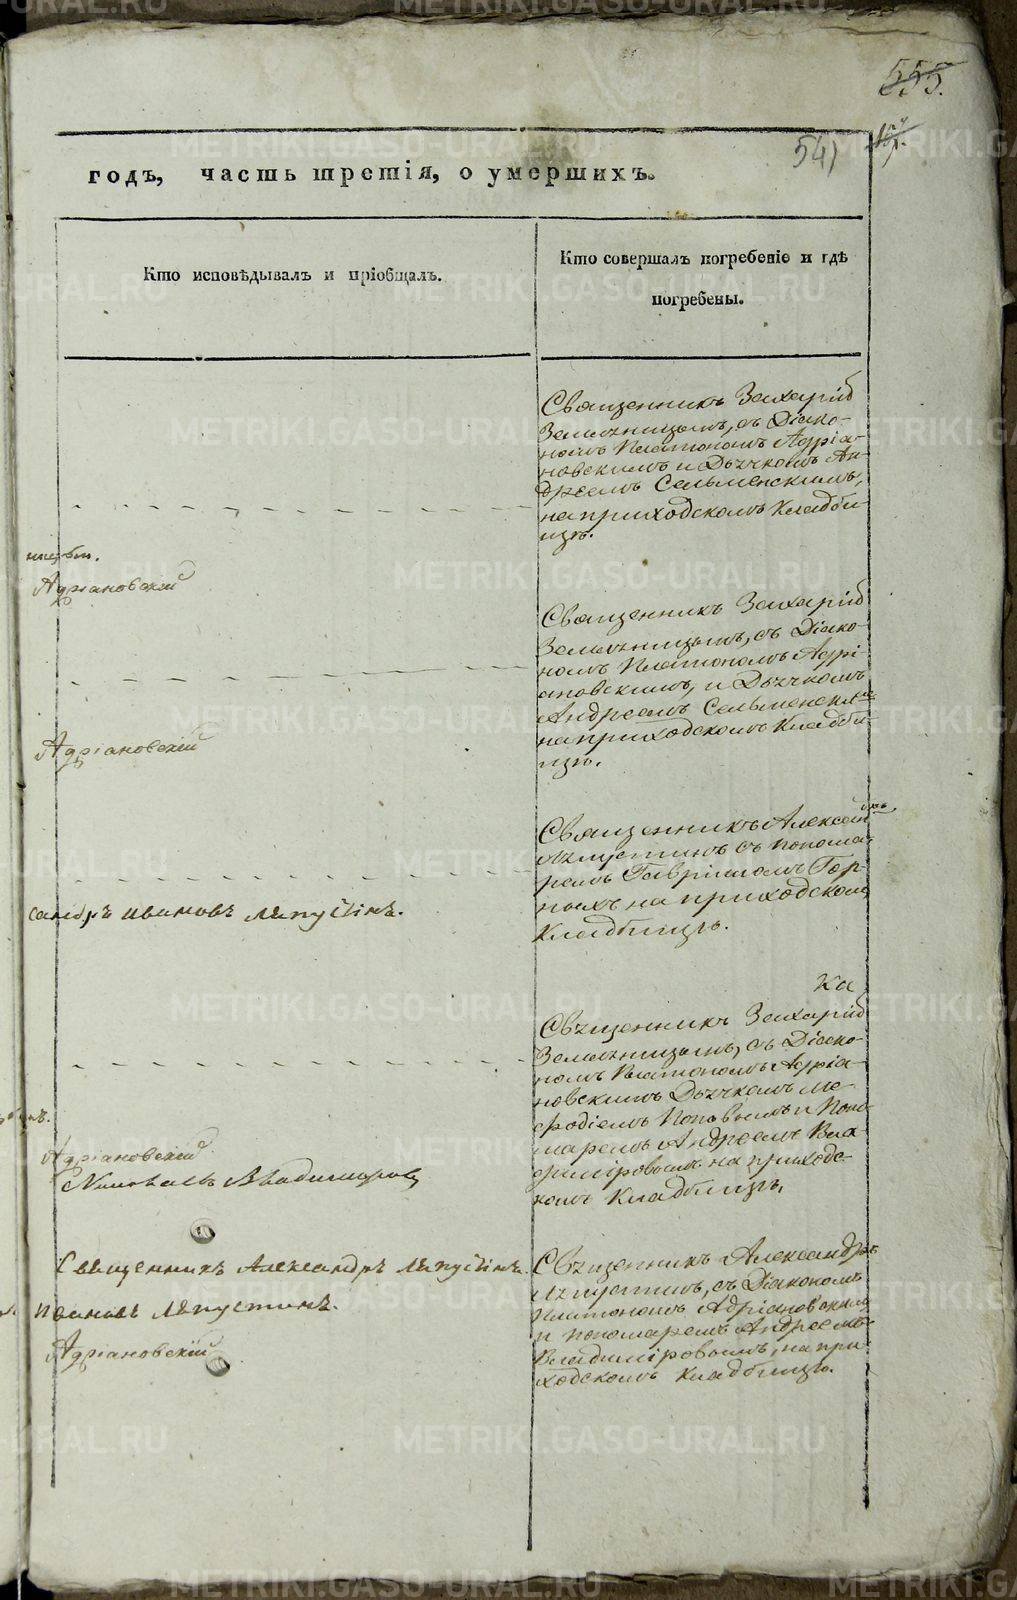 555.
541
годъ, часть третія, о умершихъ.
Кто исповѣдывалъ и пріобщалъ.
Кто совершалъ погребеніе и гдѣ
погребены.
Священникъ Захарій
Земляницынъ, съ Діако-
номъ Платономъ Адріа-
новскимъ и Дьячкомъ Ан-
дреемъ Сельменскимъ,
на приходскомъ Кладби-
щѣ.
Адріановскій
Священникъ Захарій
Земляницынъ, съ Діако-
номъ Платономъ Адрі-
ановскимъ, и Дьячкомъ
Андреемъ Сельменским
на приходскомъ Кладби-
щѣ.
Адріановскій
Священникъ Алексан
дръ
Лапустинъ съ понома-
ремъ Гавріиломъ Гор
ныхъ на приходскомъ
Кладбищѣ.
сандръ Ивановъ Лапустинъ.
Ка
Священникъ Захарій
Земляницынъ, съ Діако-
номъ Платономъ Адріа-
новскимъ Дьячкомъ Ме-
ѳодіемъ Поповымъ и Поно-
маремъ Андреемъ Вла
димировымъ на приходс-
комъ Кладбищѣ,
Адріановскій
Владимировъ
Священникъ Александръ Лапустинъ.
Ивановъ Лапустинъ.
Адріановскій
Священникъ Александръ
Лапустинъ, съ Діакономъ
Платономъ Адріановскимъ
и пономаремъ Андреемъ
Владиміровымъ, на при
ходскомъ кладбищѣ.
METRIKI.GASO-URAL.RU